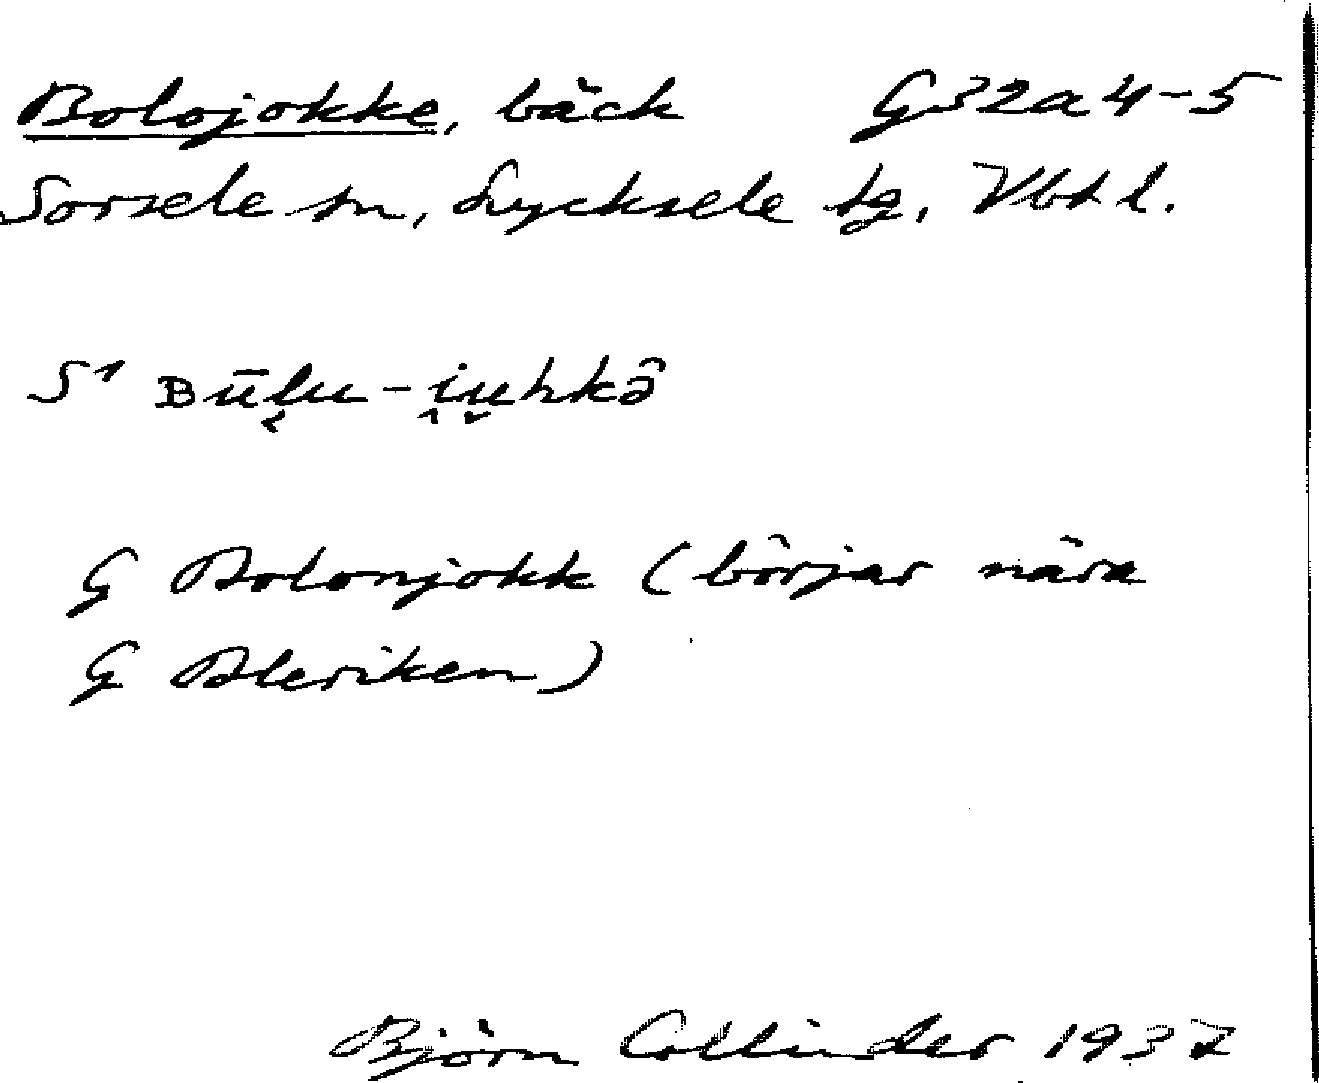 Bolojokke, bäck G32a4-5
Sorsele sn, Lycksele tg, Vbtl.
S1 Būlu-i̯ŭhkô̂
G Bolonjokk (börjar nära
G Aleriken)
Björn Collinder 1937